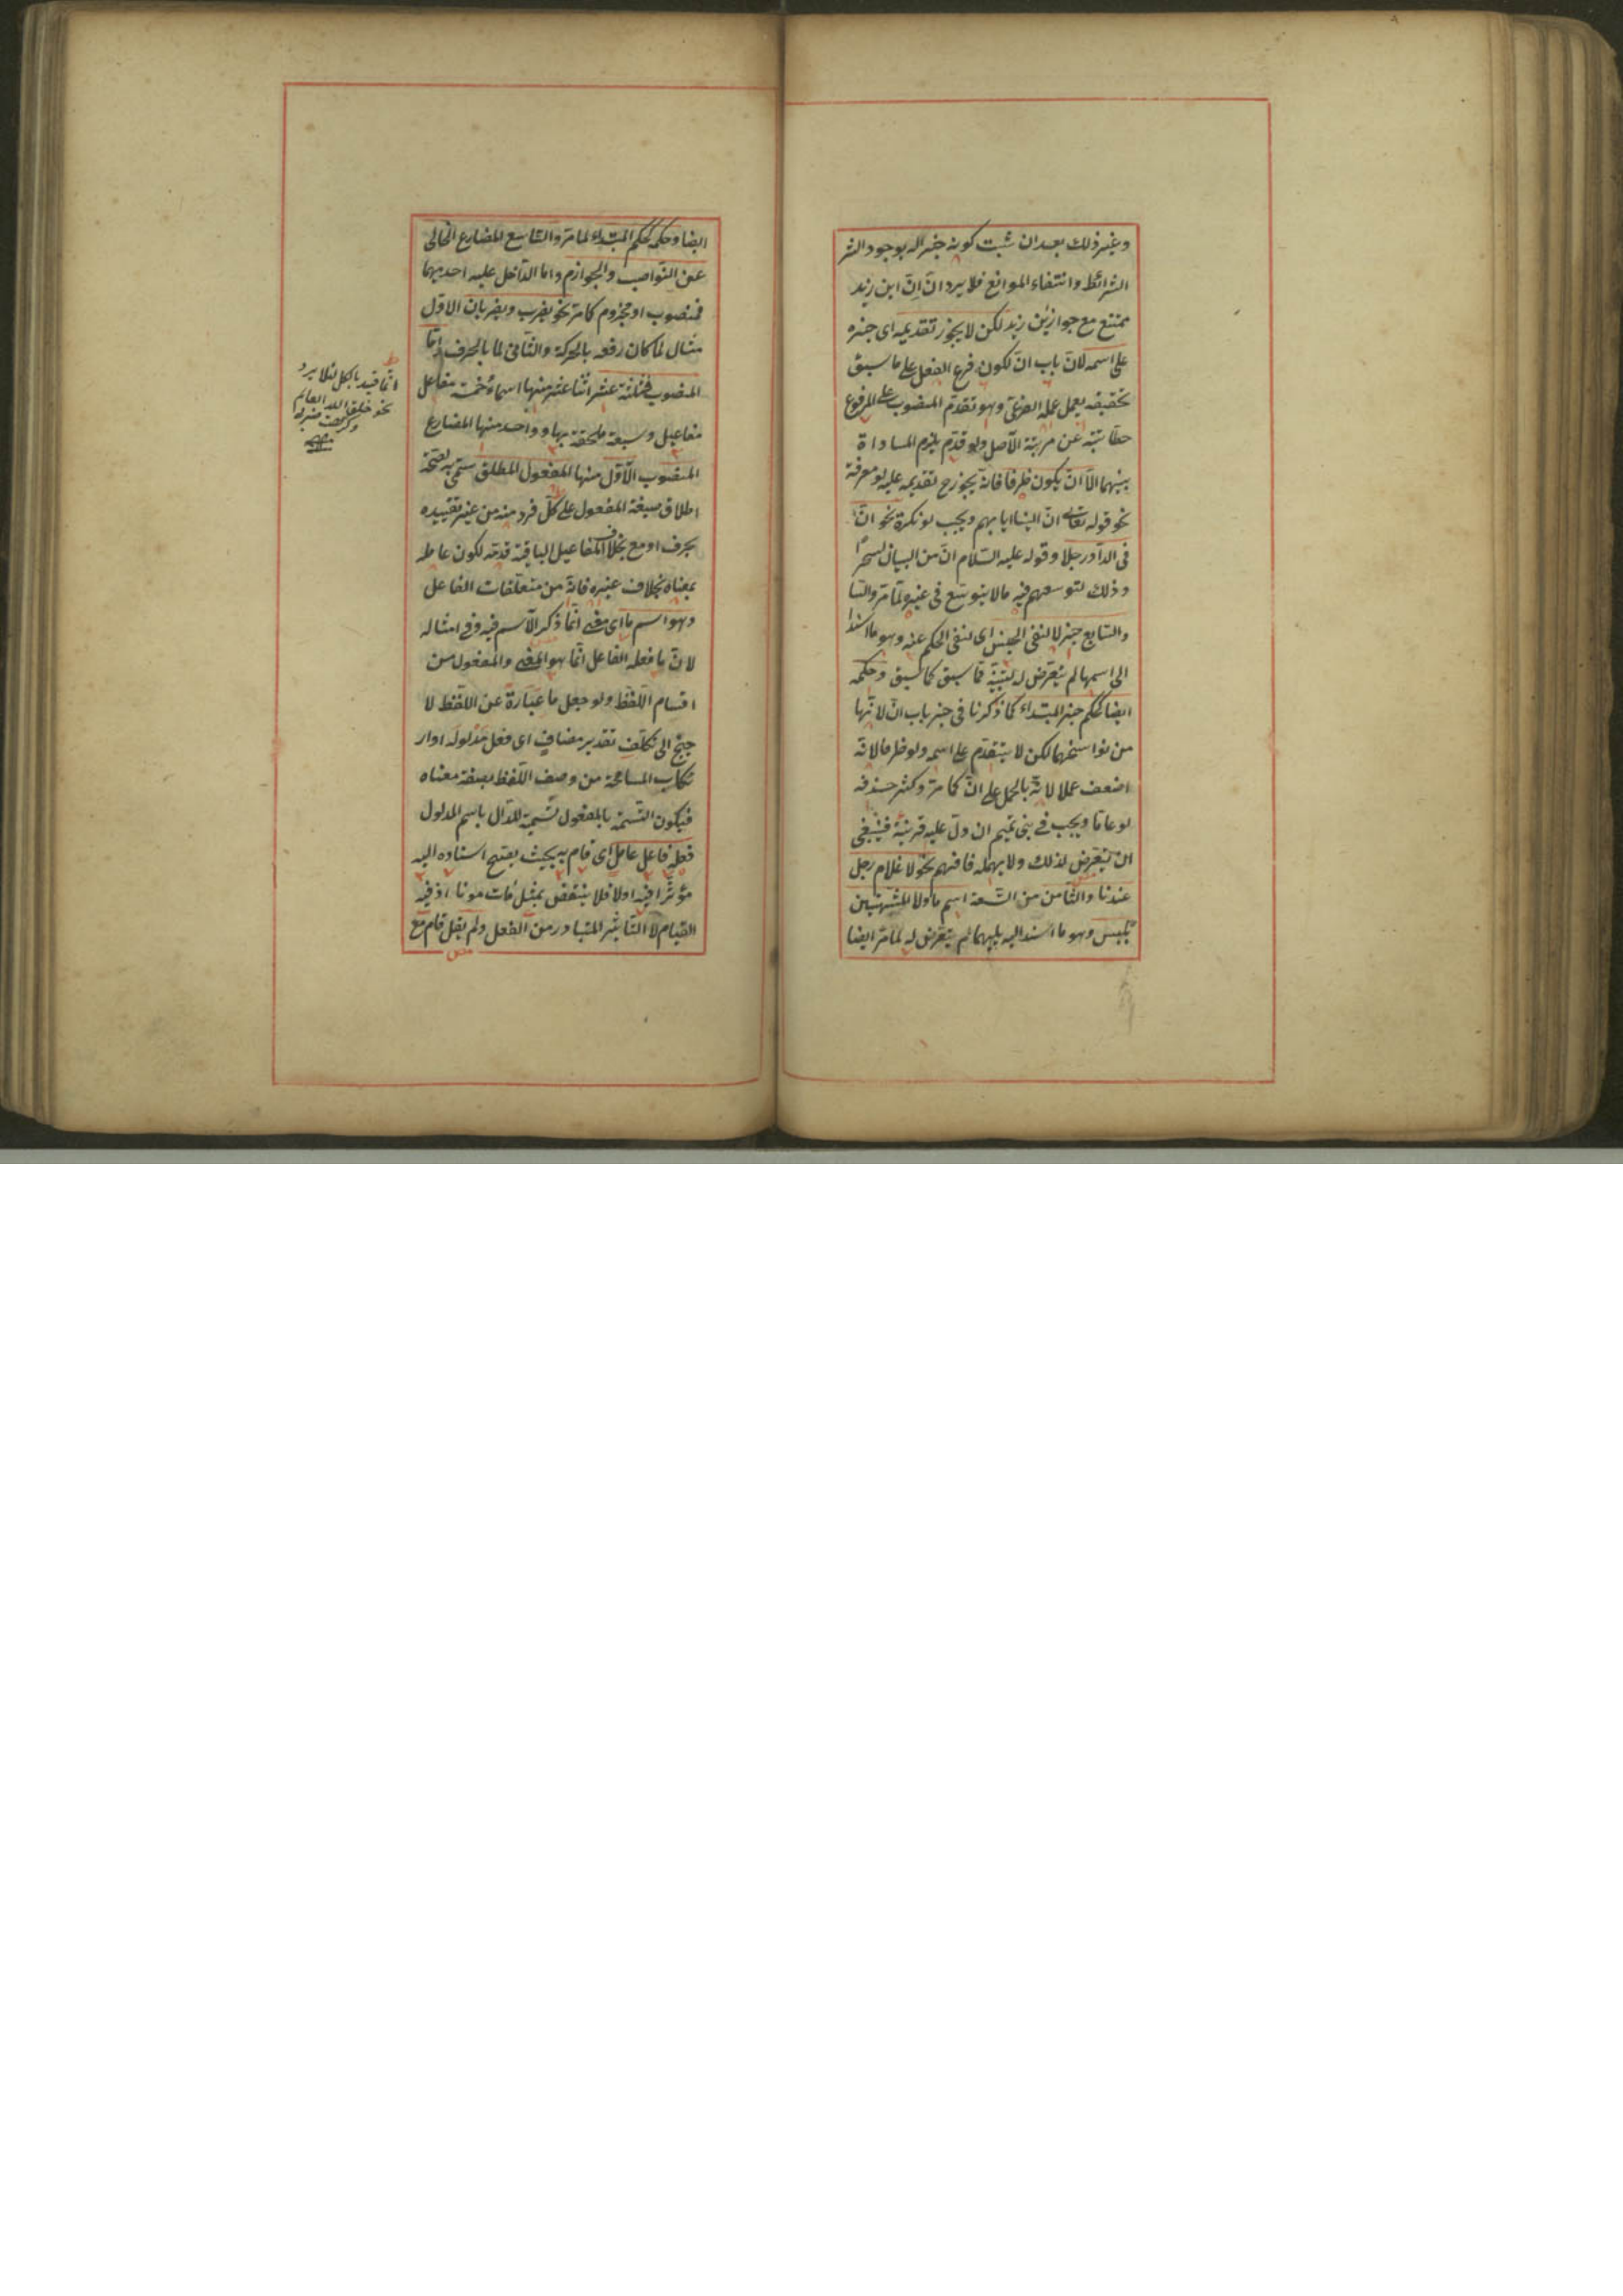 وغير ذلك بعد ان ثبت كونه خبرا له بوجود الشر
الشرائط وانتفاء الموانع فلا يرد انّ اِنّ اين زيد
ممتنع مع جواز اين زيد لكن لا يجوز تقديمه اى خبره
على اسمه لانّ باب انّ لكون فرع الفعل على ما سبق
تحقيقه يعمل عمله الفرعىّ وهو تقدّم المنصوب على المرفوع
حطّا رتبته عن مرتبة الاصل ولو قدّم يلزم المساواة
بينهما الّا ان يكون ظرفا فانه يجوز ح تقديمه عليه لو معرفة
نحو قوله تعالى انّ الينا ايابهم ويجب لو نكرة نحو انّ
فى الدار رجلا وقوله عليه السّلام انّ من البيان لسحرًا
وذلك لتوسعهم فيه مالا يتوسّع فى غيره لما مرّ والسّا
والسّابع خبر لا لنفى الجنس اى لنفى الحكم عنه وهو ما اسند
الى اسمها لم يتعرّض له لتبيّنه ممّا سبق كما سبق وحكمه
ايضا كحكم خبر المبتداء كما ذكرنا فى خبر باب انّ لانّها
من نواسخهما لكن لا يتقدّم على اسمه ولو ظرفا لانّه
اضعف عملا لانّه بالحمل على انّ كما مرّ وكثر حذفه
لو عامّا ويجب فى بنى تميم ان دلّ عليه قرينة فينبغى
ان يتعرّض لذلك ولا يهمله فافهم نحو لا غلام رجل
عندنا والثّامن من التّسعة اسم ما ولا المشبّهتين
بليس وهو ما اسند اليه يليهما لم يتعرّض له لما مرّ ايضا
ايضا وحكمه كحكم المبتداء لما مرّ والتّاسع المضارع الخالى
عن النّواصب والجوازم وامّا الدّاخل عليه احديهما
فمنصوب او مجزوم كما مرّ نحو يضرب ويضربان الاوّل
مثال لما كان رفعه بالحركة والثّانى لما بالحرف وامّا
المنصوب فثلثة عشر اثنا عشر منها اسماء خمسة مفاعل
مفاعيل وسبعة ملحقة بها وواحد منها المضارع
المنصوب الاوّل منها المفعول المطلق سمّى به لصحّة
اطلاق صيغة المفعول على كلّ فرد منه من غير تقييده
بحرف او مع بخلاف المفاعيل الباقية قدّمه لكون عامله
بمعناه بخلاف غيره فانّه من متعلّقات الفاعل
وهو اسم ما اى معنى انّما ذكر الاسم فيه وفى امثاله
لانّ ما فعله الفاعل انّما هو المعنى والمفعول من
اقسام اللّفظ ولو جعل ما عبارة عن اللّفظ لا
حتيج الى تكلّف تقدير مضاف اى فعل مدلوله او ار
تكاب المسامحة من وصف اللّفظ بصفة معناه
فيكون التّسمية بالمفعول تسمية للدّال باسم المدلول
فعله فاعل عامل اى قام به بحيث يصحّ اسناده اليه
مؤثّرا فيه اولا فلا ينتقض بمثل مات موتا اذ فيه
القيام لا التّاثير المتبادر من الفعل ولم يقل قام مع
انّما قيد بالكل لئلا يرد
نحو خلق الله العالم
وكرهت ضربه
منه